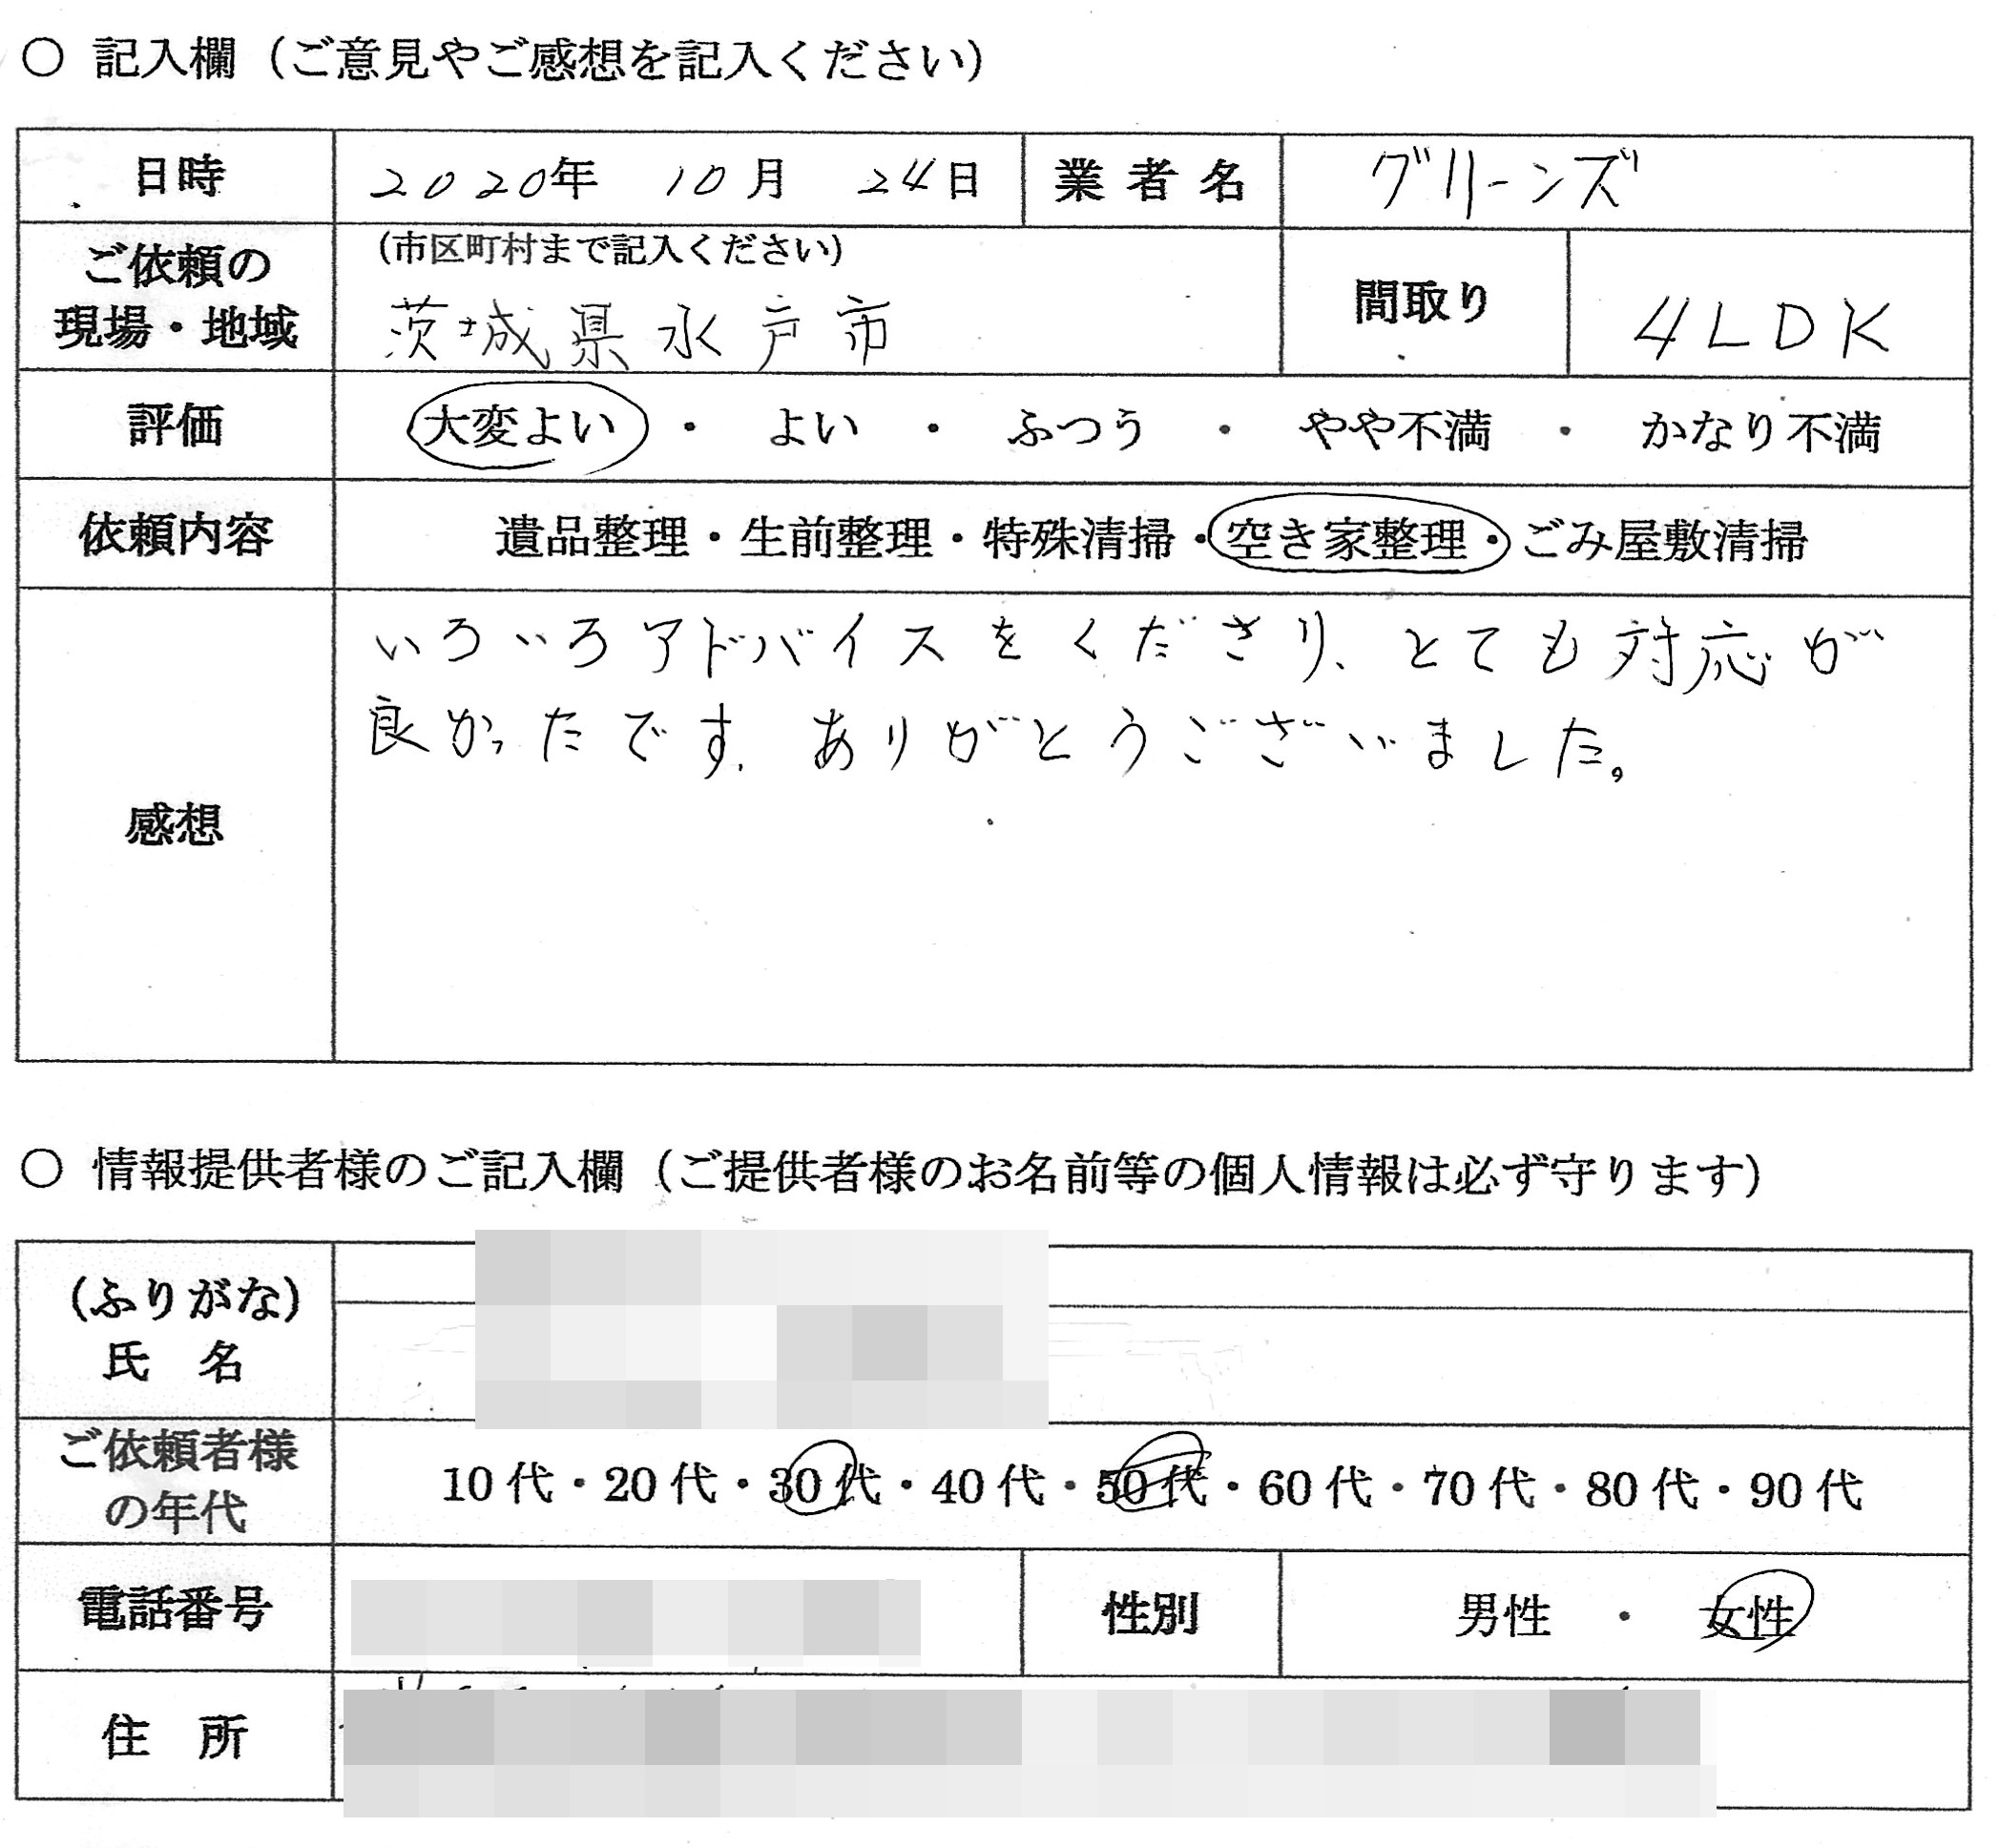 ○ 記入欄（ご意見やご感想を記入ください）
日時 2020年 10月 24日 業者名 グリーンズ
ご依頼の
現場・地域
（市区町村まで記入ください）
茨城県水戸市
間取り 4LDK
評価 大変よい ・ よい ・ ふつう ・ やや不満 ・ かなり不満
依頼内容 遺品整理・生前整理・特殊清掃・空き家整理・ごみ屋敷清掃
感想
いろいろアドバイスをくださり、とても対応が
良かったです。ありがとうございました。
○ 情報提供者様のご記入欄（ご提供者様のお名前等の個人情報は必ず守ります）
（ふりがな）
氏 名
ご依頼者様
の年代
10代・20代・30代・40代・50代・60代・70代・80代・90代
電話番号 性別 男性 ・ 女性
住 所